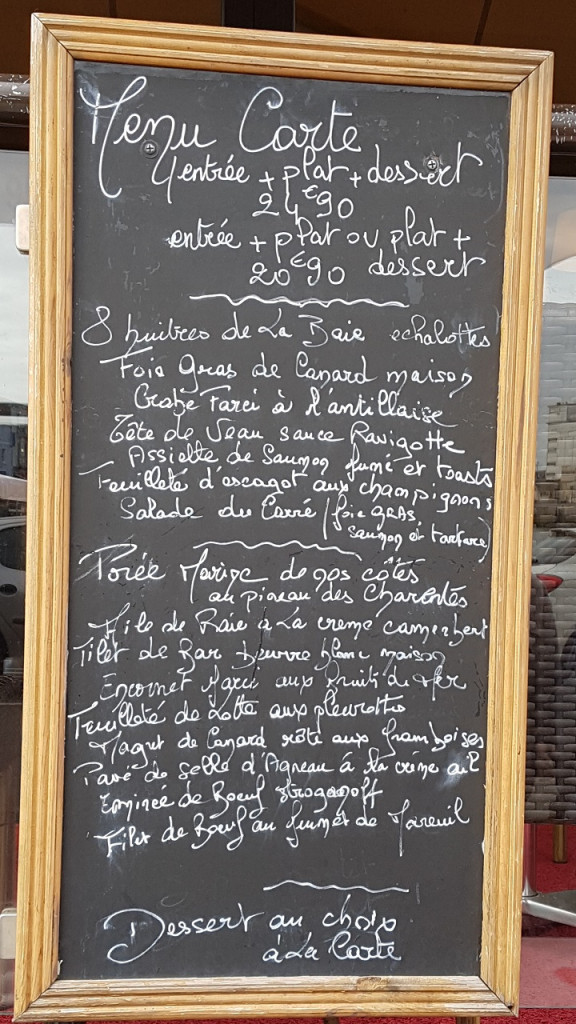 Menu Carte
entrée + plat + dessert
24€90
entrée + plat ou plat +
20€90 dessert
8 huitres de La Baie echalottes
Foie Gras de Canard maison
Crabe Farci à l'antillaise
Tête de Veau sauce Ravigotte
Assiette de Saumon fumé et toasts
Feuilleté d'escagot aux champignons
Salade du Carré (foie GRAS,
saumon et tartare)
Porée Marine de nos côtés
au pineau des Charentes
Aile de Raie à La creme camenbert
Filet de Bar beurre blanc maison
Encornet Farci aux fruits de Mer
Feuilleté de Lotte aux pleurottes
Magret de Canard rôti aux framboises
Pavé de Selle d'Agneau à la crème ail
Eminée de Boeuf strogonoff
Filet de Boeuf au fumet de Mareuil
Dessert au choix
à La Carte